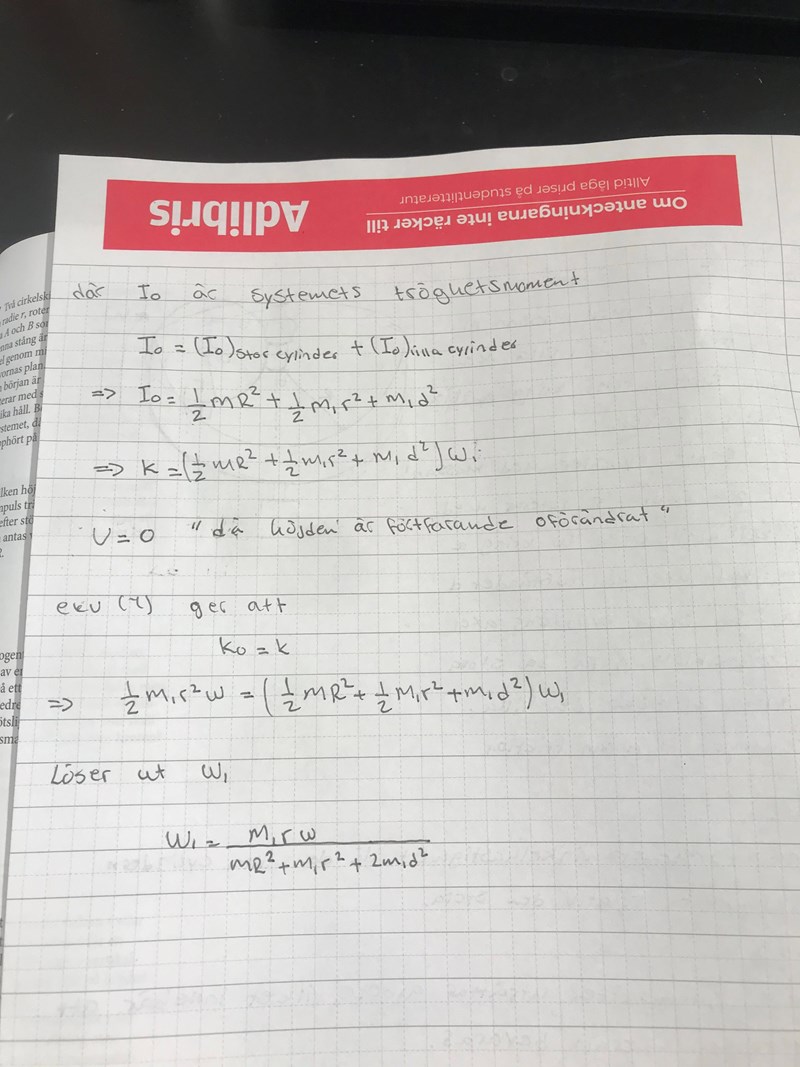 Om anteckningarna inte räcker till
Alltid låga priser på studentlitteratur
Adlibris
där I₀ är systemets tröghetsmoment
I₀ = (I₀)stor cylinder + (I₀)lilla cylinder
=> I₀ = 1/2 mR² + 1/2 m₁r² + m₁d²
=> k = (1/2 mR² + 1/2 m₁r² + m₁d²) ω₁
U = 0 "då höjden är fortfarande oförändrat"
ekv (2) ger att
k₀ = k
=> 1/2 m₁r²ω = (1/2 mR² + 1/2 m₁r² + m₁d²) ω₁
Löser ut ω₁
ω₁ = m₁rω / mR² + m₁r² + 2m₁d²
Två cirkelsk
radie r, roter
A och B so
nna stång är
el genom m
vornas plan
början är
erar med s
ika håll. B
stemet, d
phört på
lken höj
npuls tr
efter stö
antas
ogen
av e
å ett
edre
ötsli
sma